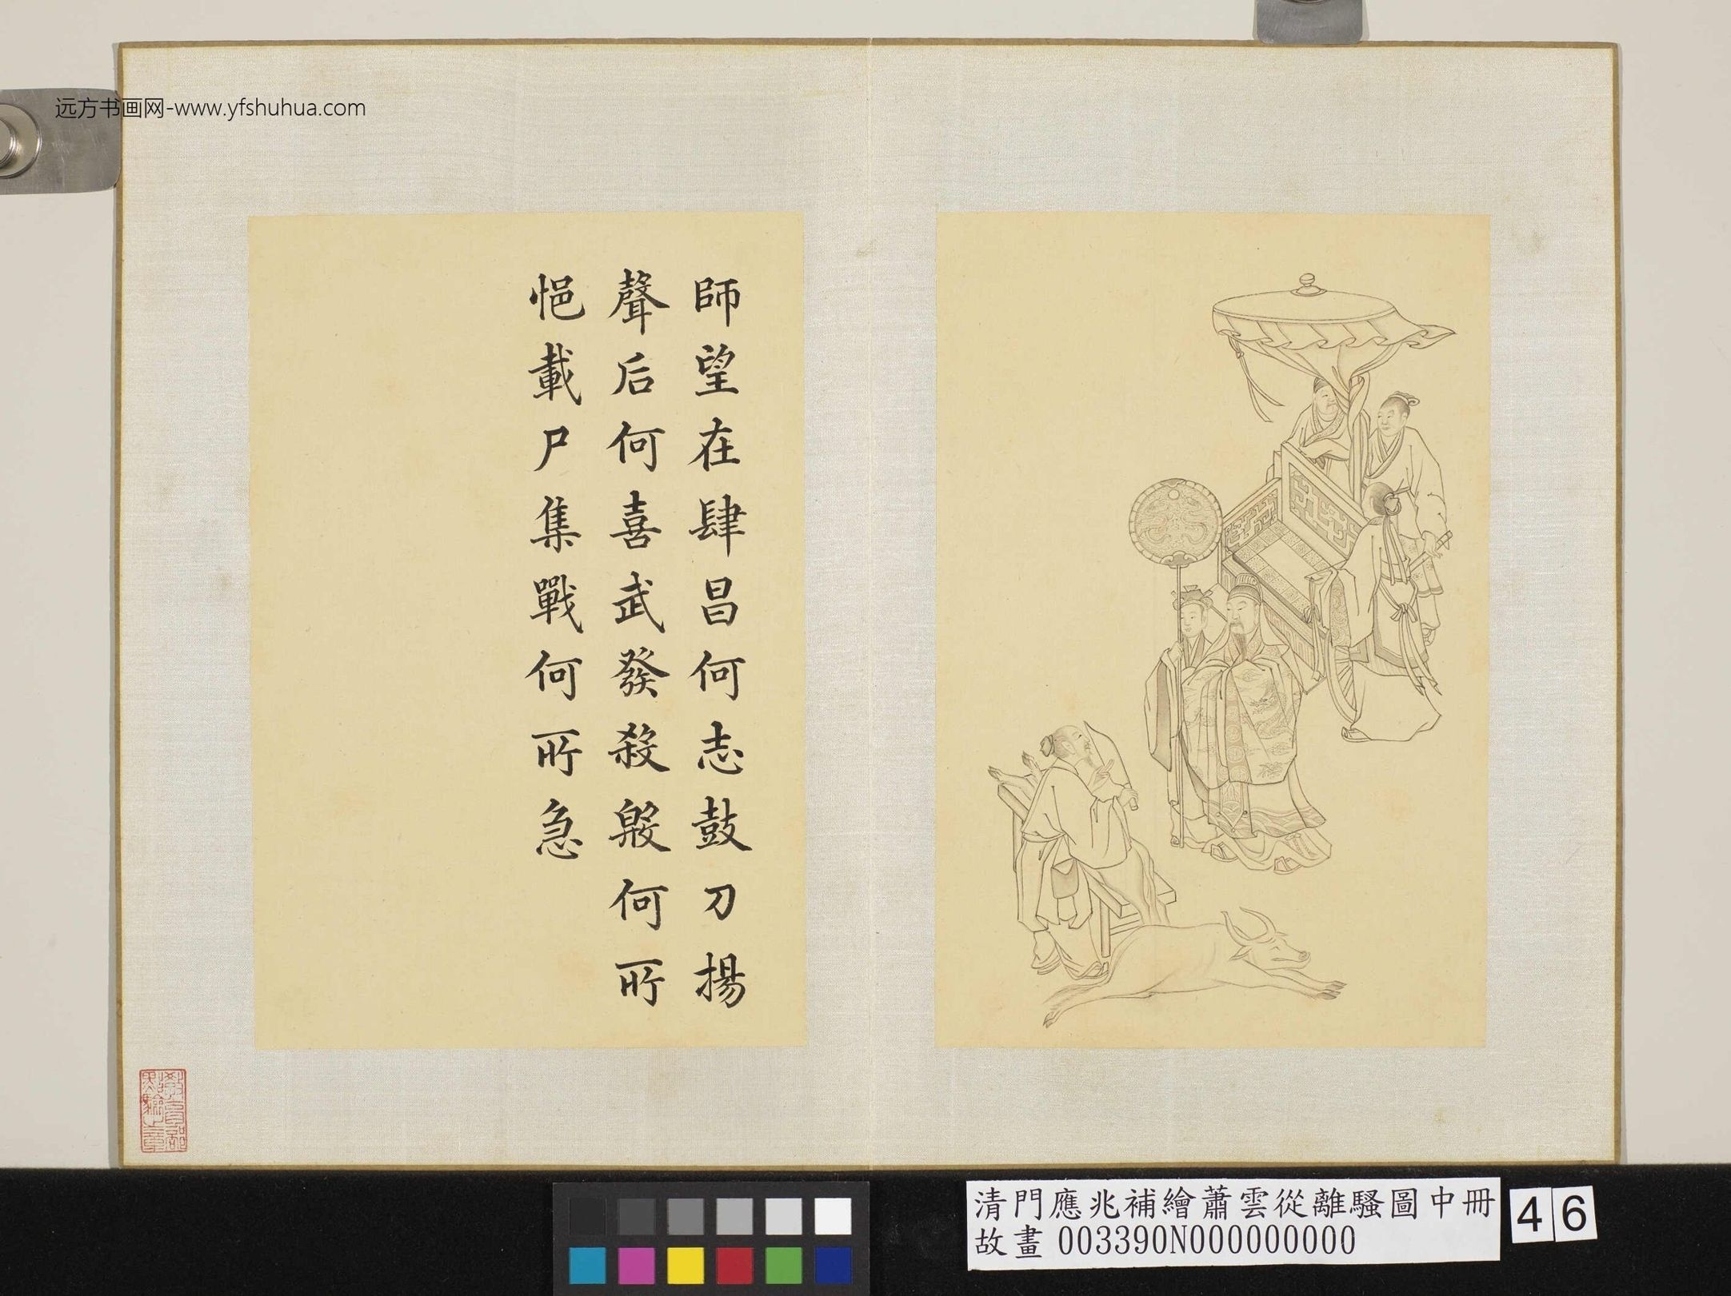 远方书画网-www.yfshuhua.com
師望在肆昌何志鼓刀揚
聲后何喜武發殺殷何所
悒載尸集戰何所急
清門應兆補繪蕭雲從離騷圖中冊
故畫 003390N000000000
46